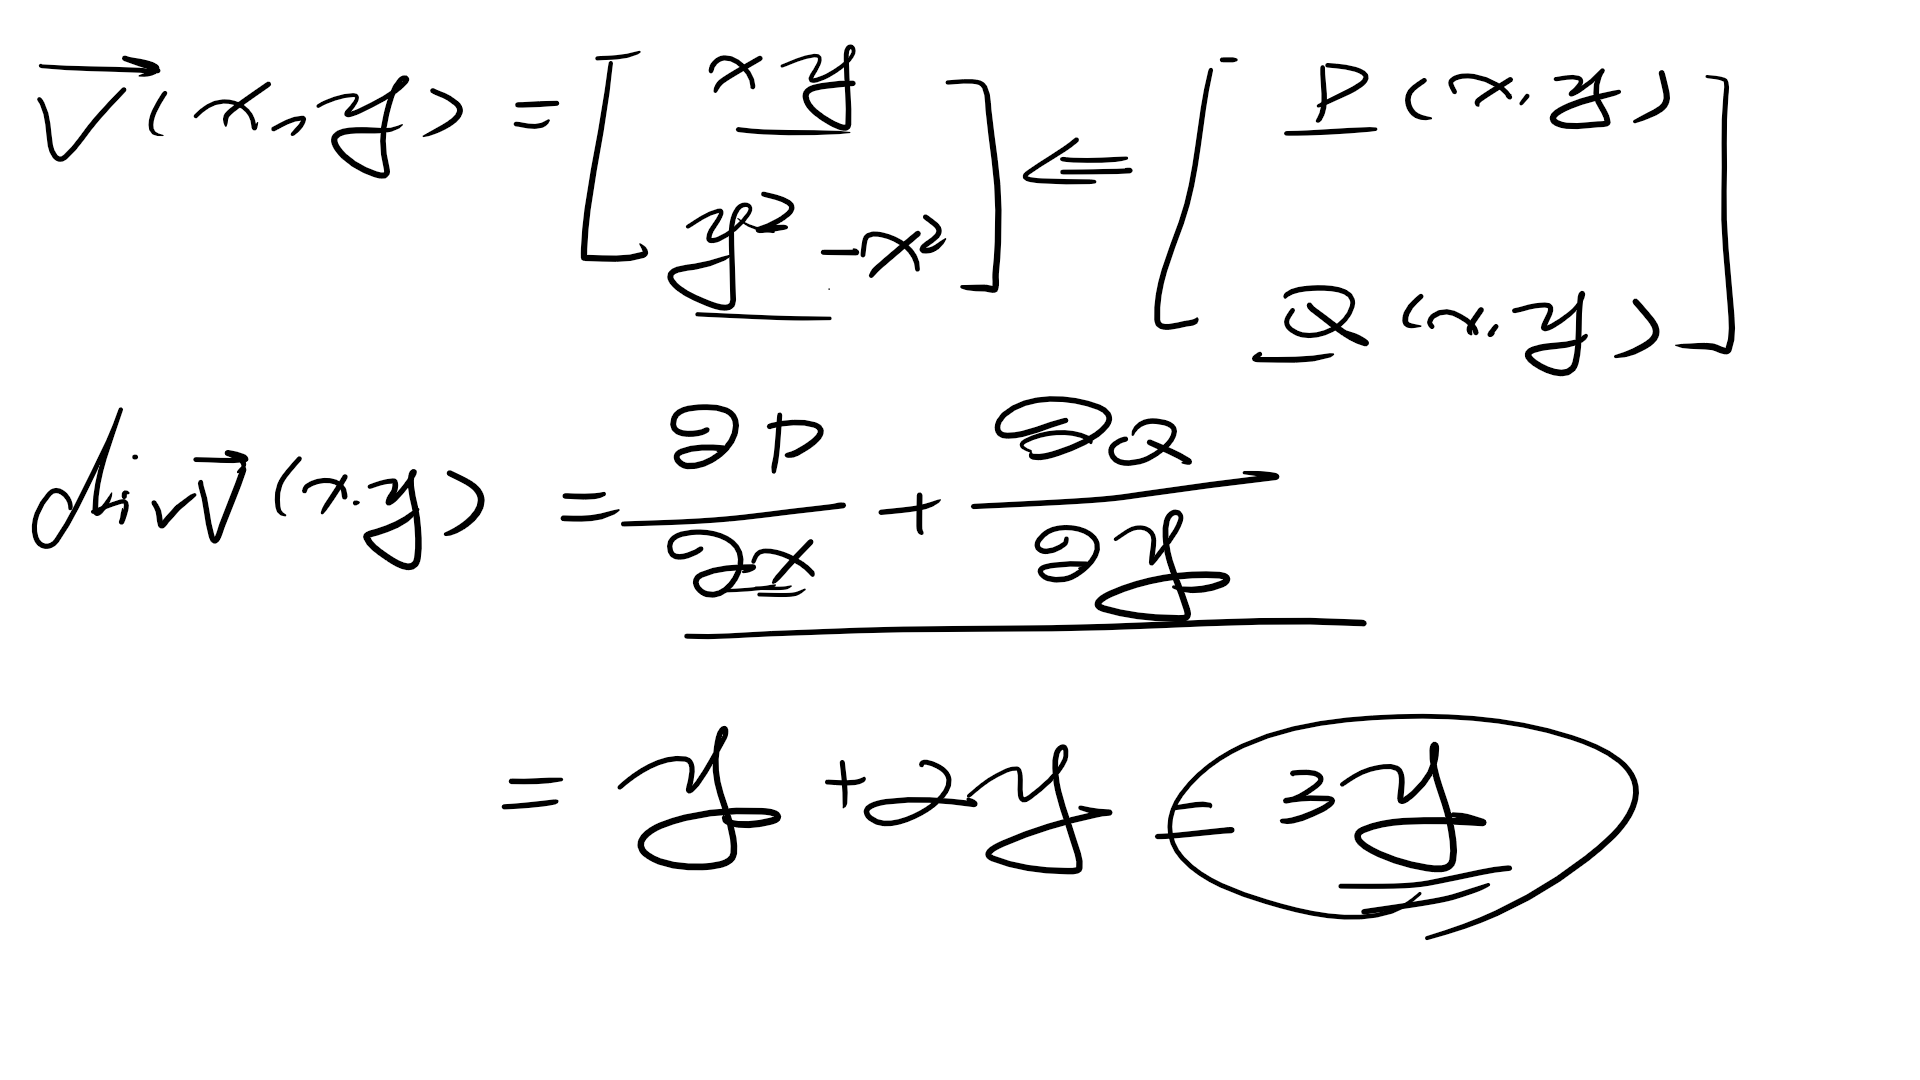 V⃗(x,y) = [xy  y² - x²] ⇐ [P(x,y)  Q(x,y)]
div V⃗(x,y) = ∂P/∂x + ∂Q/∂y
= y + 2y = 3y